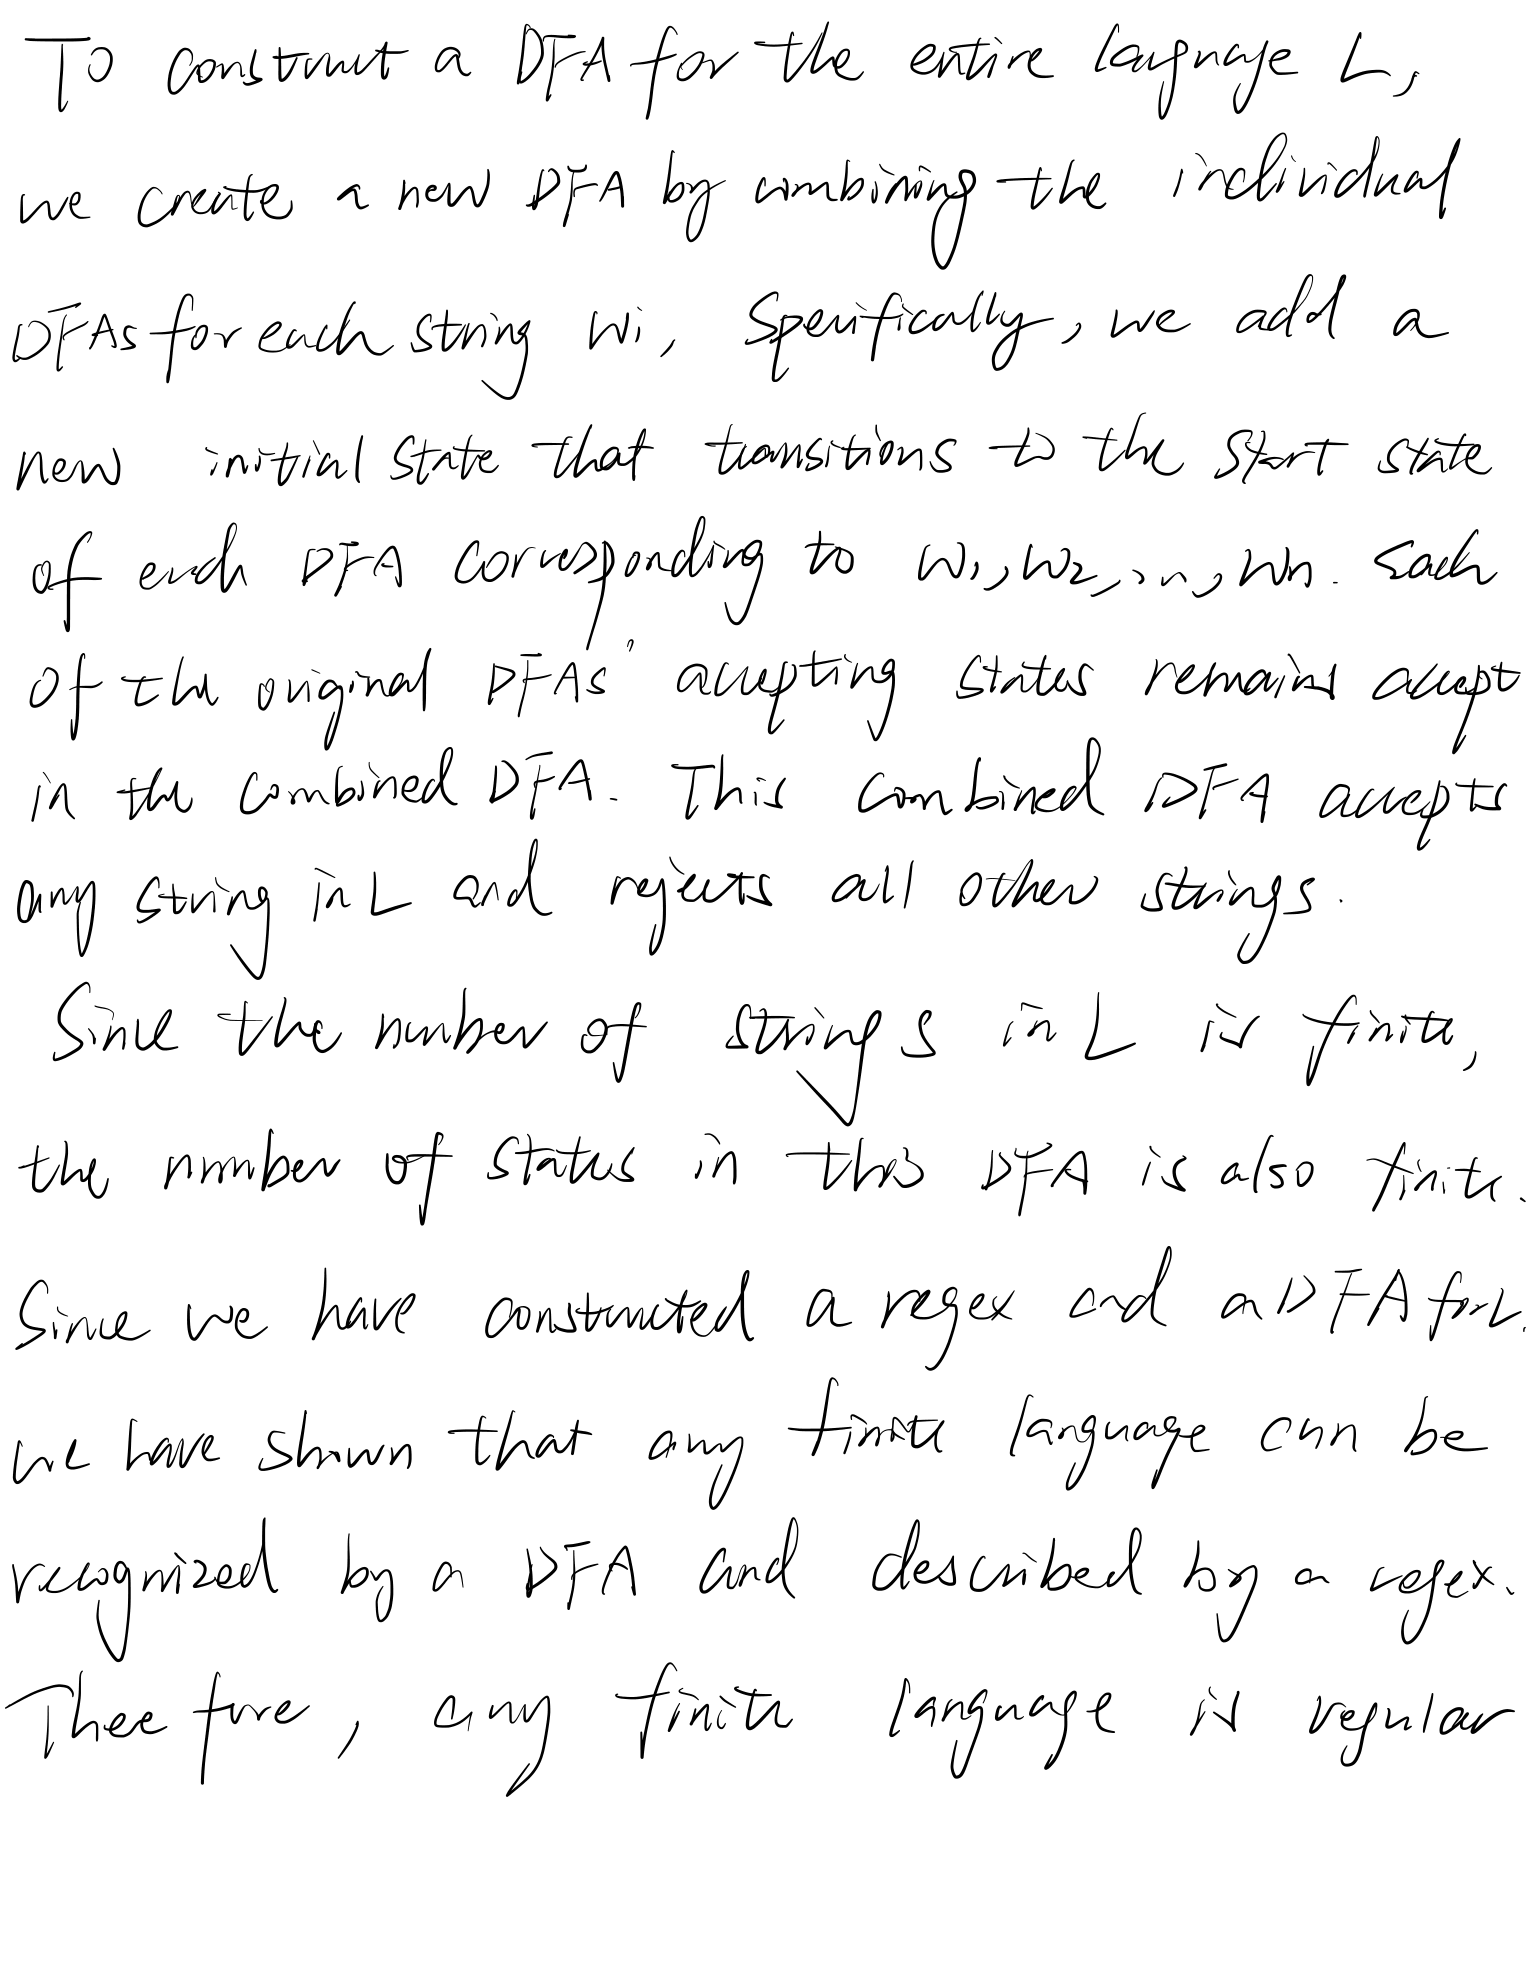 To construct a DFA for the entire language L,
we create a new DFA by combining the individual
DFAs for each string wi, Specifically, we add a
new initial state that transitions to the start state
of each DFA corresponding to w1, w2, ..., wn. Each
of the original DFAs' accepting states remains accept
in the combined DFA. This combined DFA accepts
any string in L and rejects all other strings.
Since the number of strings in L is finite,
the number of states in this DFA is also finite.
Since we have constructed a regex and a DFA for L.
we have shown that any finite language can be
recognized by a DFA and described by a regex.
Theefore, any finite language is regular